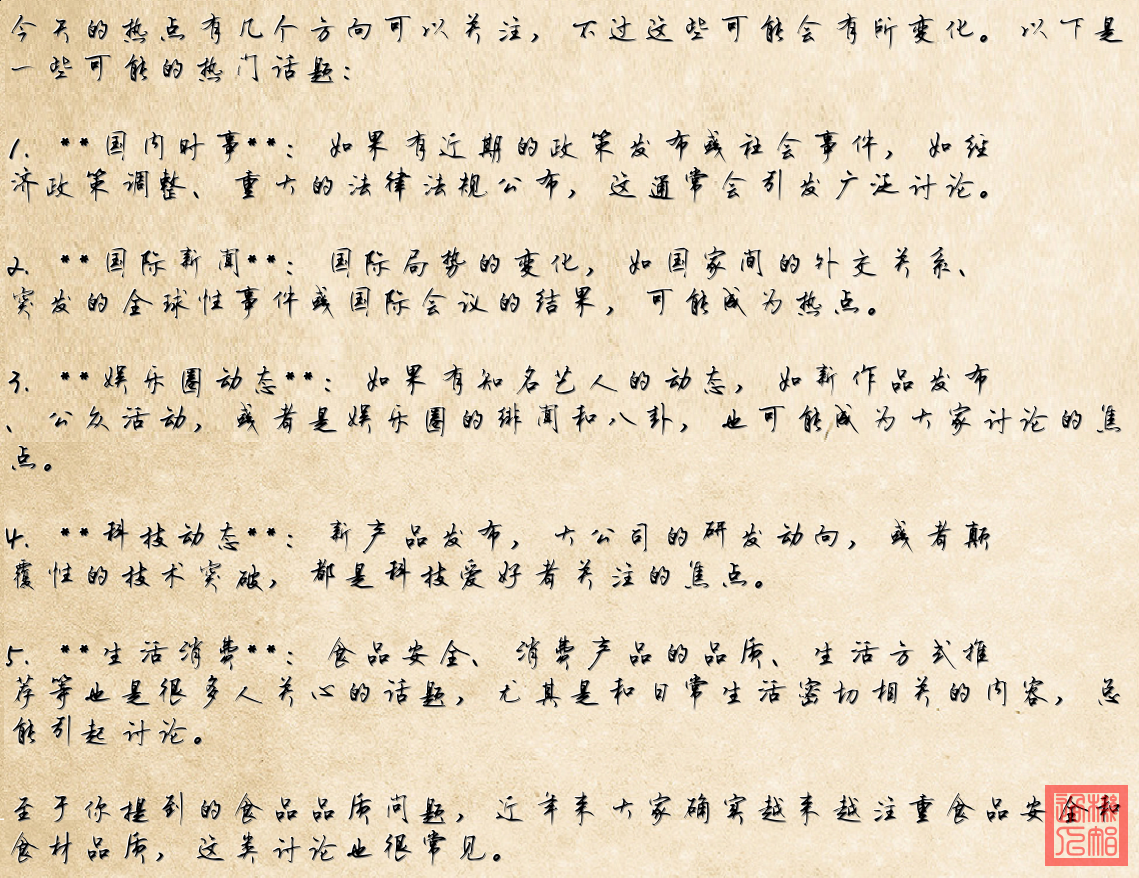 今天的热点有几个方向可以关注，不过这些可能会有所变化。以下是
一些可能的热门话题：
1. **国内时事**：如果有近期的政策发布或社会事件，如经
济政策调整、重大的法律法规公布，这通常会引发广泛讨论。
2. **国际新闻**：国际局势的变化，如国家间的外交关系、
突发的全球性事件或国际会议的结果，可能成为热点。
3. **娱乐圈动态**：如果有知名艺人的动态，如新作品发布
、公众活动，或者是娱乐圈的绯闻和八卦，也可能成为大家讨论的焦
点。
4. **科技动态**：新产品发布，大公司的研发动向，或者颠
覆性的技术突破，都是科技爱好者关注的焦点。
5. **生活消费**：食品安全、消费产品的品质、生活方式推
荐等也是很多人关心的话题，尤其是和日常生活密切相关的内容，总
能引起讨论。
至于你提到的食品品质问题，近年来大家确实越来越注重食品安全和
食材品质，这类讨论也很常见。